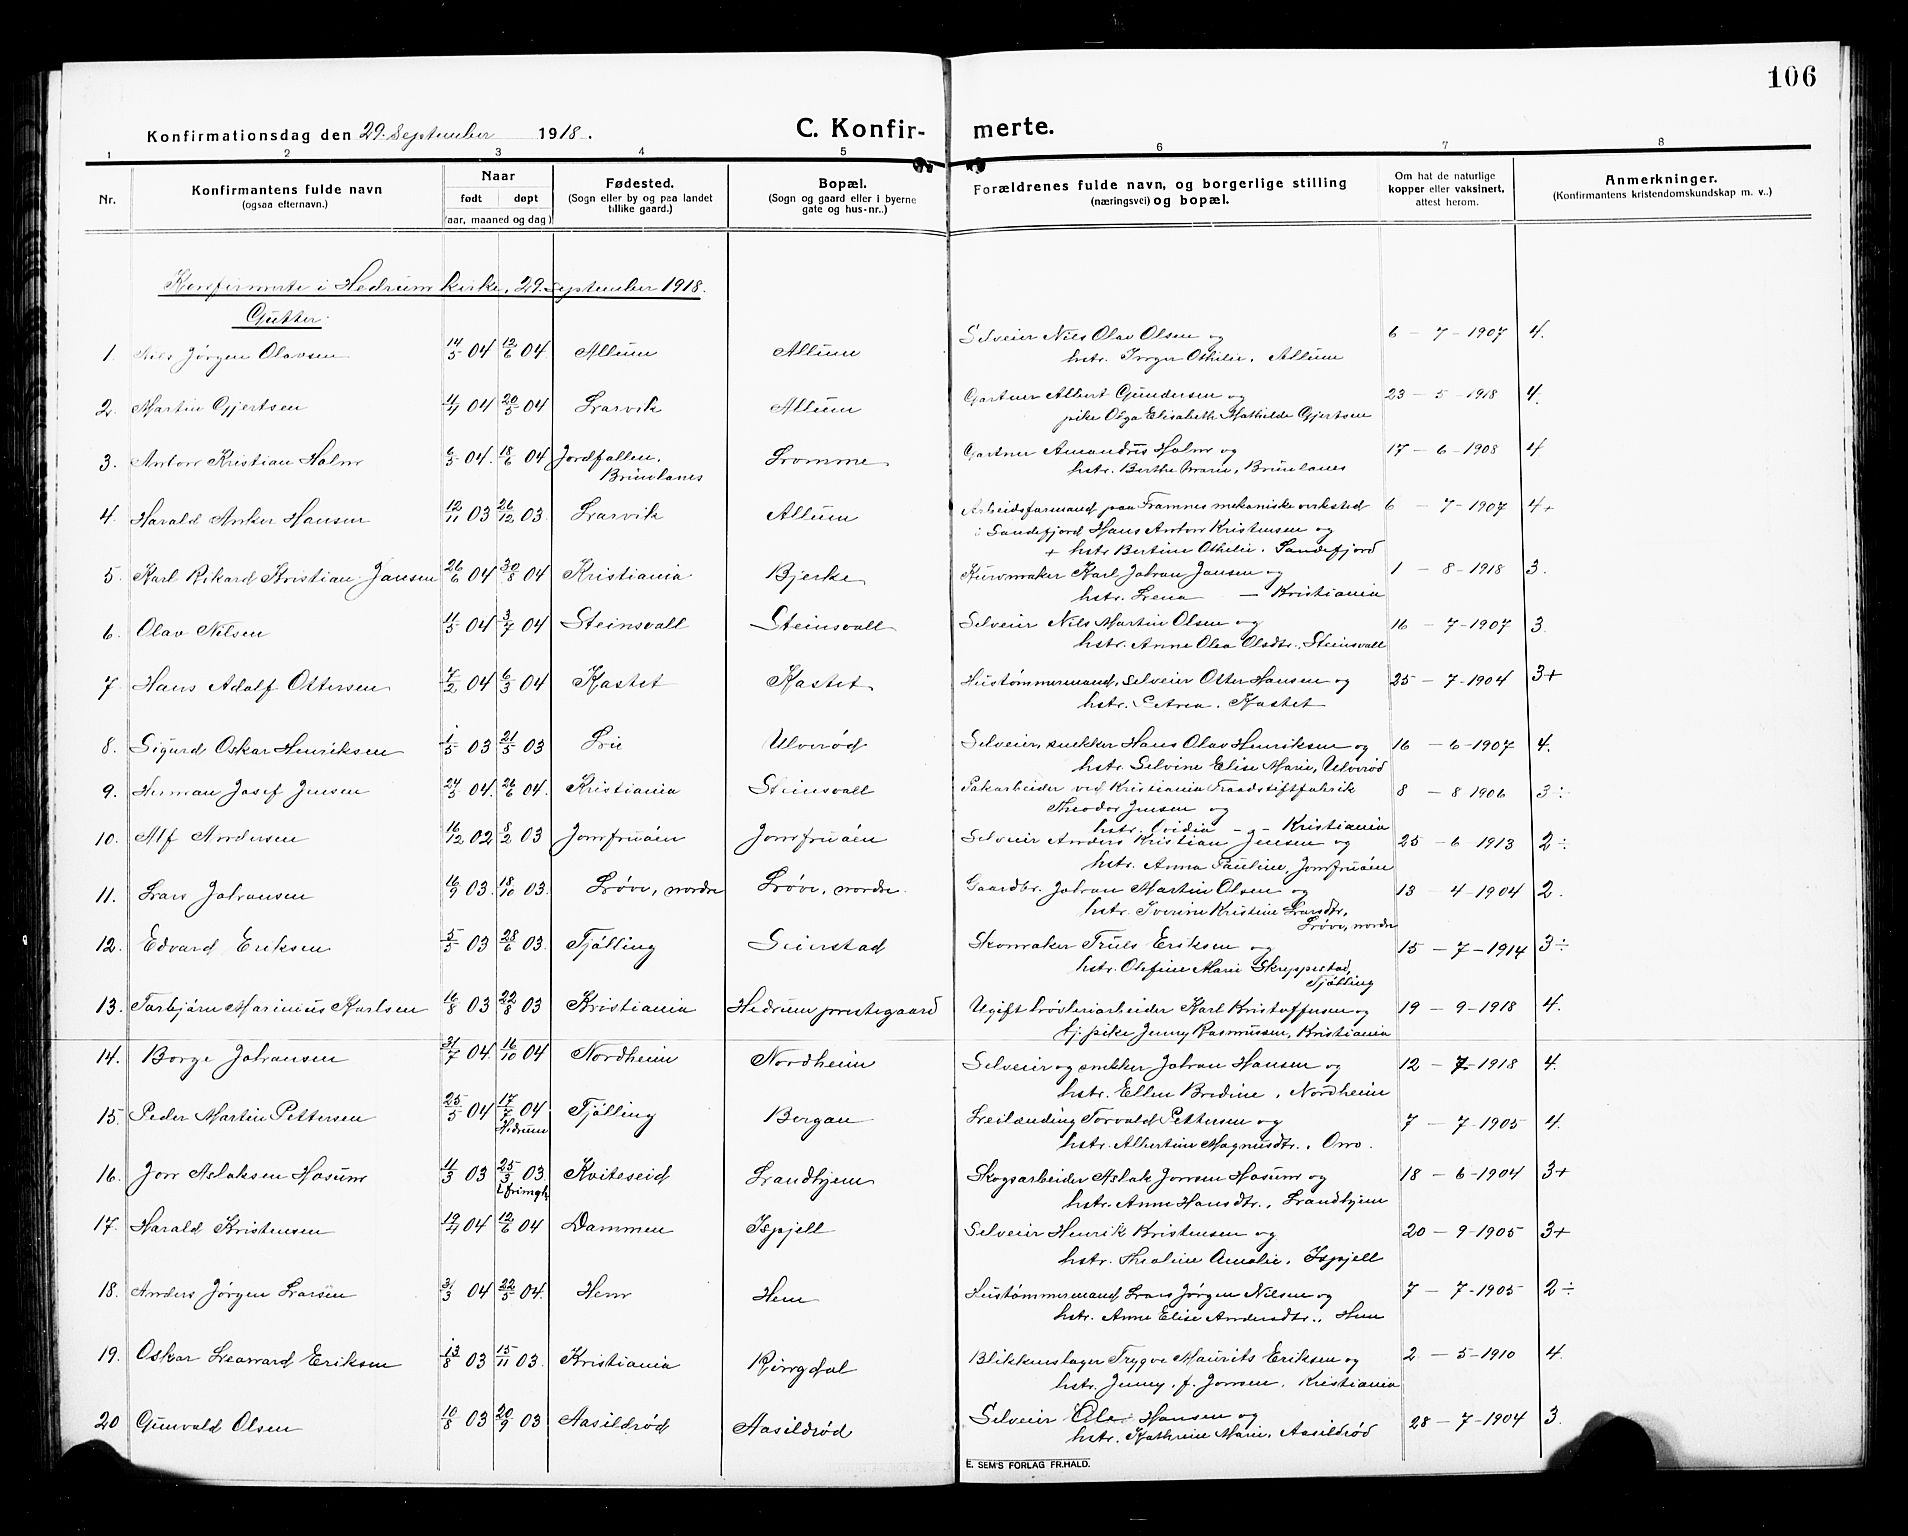 106
Konfirmationsdag den 29. September 1918.
C. Konfirmerte.
1 2 3 4 5 6 7 8
Nr. Konfirmantens fulde navn (ogsaa efternavn). Naar født døpt (aar, maaned og dag) Fødested. (Sogn eller by og paa landet tillike gaard.) Bopæl. (Sogn og gaard eller i byerne gate og hus-nr..) Forældrenes fulde navn, og borgerlige stilling (næringsvei) og bopæl. Om hat de naturlige kopper eller vaksinert, attest herom. Anmerkninger. (Konfirmantens kristendomskundskap m. v..)
Konfirmerte i Hedrum kirke, 29. september 1918.
Gutter.
1. Nils Jørgen Olavsen 14/5 04 12/6 04 Allum Allum Selveier Nils Olav Olsen og 6 – 7 – 1907 4.
hstr. Inger Othilie, Allum
2. Martin Gjertsen 11/4 04 20/5 04 Larvik Allum Gartner Albert Gundersen og 23 – 5 – 1918 4.
pike Olga Elisabeth Mathilde Gjertsen
3. Anton Kristian Holm 6/5 04. 18/6 04 Jordfallen, Brunlanes Lromme Gartner Amandus Holm og 17 – 6 – 1908 4
hstr. Berthe Marie, Brunlanes
4. Harald Anker Hansen 12/11 03 26/12 03. Larvik Allum Arbeidsformand paa Framnes mekaniske verksted 6 – 7 – 1907 4+
i Sandefjord Hans Anton Kristensen og
+ hstr Bertine Othilie. Sandefjord
5. Karl Rikard Kristian Jansen 26/6 04 30/8 04 Kristiania Bjerke Kurvmaker Karl Johan Jansen og 1 – 8 – 1918 3.
hstr. Lrena — Kristiania
6. Olav Nilsen 11/5 04 3/7 04 Steinsvall Steinsvall Selveier Nils Martin Olsen og 16 – 7 – 1907 3.
hstr. Anne Olea Olsdtr., Steinsvall
7 Hans Adolf Ottersen 7/2 04 6/3 04 Kastet Kastet Hustømmermand, Selveier Otter Hansen og 25 – 7 – 1904 3+
hstr. Petrea. Kastet
8. Sigurd Oskar Henriksen 1/5 03 21/5 03 Lie Ulverød Selveier, snekker Hans Olav Henriksen og 16 – 6 – 1907 4.
hstr. Selvine Elise Marie, Ulverød
9. Herman Josef Jensen 24/5 04. 26/6 04. Kristiania Steinsvall Pakarbeider ved Kristiania Traadstiftfabrik 8 – 8 1906 3 ÷
Theodor Jensen og
hstr. Ovidia – „ – Kristiania
10. Alf Andersen 16/12 02 8/2 03 Jomfruøen Jomfruøen Selveier Anders Kristian Jensen og 25 – 6 – 1913 2 ÷
hstr. Anna Pauline, Jomfruøen
11. Lars Johansen 16/9 03. 18/10 03. Løve, nordre Løve, nordre. Gaardbr. Johan Martin Olsen og 13 – 4 – 1904 2.
hstr. Iverine Kristine Larsdtr.
Løve, nordre
12. Edvard Eriksen 5/5 03 28/6 03. Tjølling Seierstad Skomaker Truls Eriksen og 15 – 7 – 1914 3 ÷
hstr. Olefine Marie Skreppestad,
Tjølling
13. Torbjørn Marinius Karlsen 16/8 03 22/8 03 Kristiania Hedrum prestegaard Ugift brøileriarbeider Karl Kristoffersen og 19 – 9 – 1918 4.
tj. pike Jenny Rasmussen, Kristiania
14. Borge Johansen 31/7 04. 16/10 04 Nordheim Nordheim Selveier og snekker Johan Hansen og 12 – 7 – 1918 4.
hstr. Ellen Bredine, Nordheim
15. Peder Martin Pettersen 25/5 04 17/7 04 Hedrum Tjølling Bergan Leilænding Torvald Pettersen og 7 – 7 – 1905 4.
hstr. Albertine Magnusdtr., Omo.
16. Jon Aslaksen Hosum 11/3 03 25/3 03. Kviteseid Landhjem Skogsarbeider Aslak Jonsen Hosum og 18 – 6 – 1904 3+
hstr. Anne Hansdtr., Landhjem
17. Harald Kristensen 19/4 04 12/6 04 Dammen Ispjell Selveier Henrik Kristensen og 20 – 9 – 1905 3+
hstr. Theoline Amalie, Ispjell
18. Anders Jørgen Larsen 31/3 04 22/5 04. Hem Hem Hustømmermand Lars Jørgen Nilsen og 7 – 7 – 1905 2 ÷
hstr. Anne Elise Andersdtr., Hem
19. Oskar Leonard Eriksen 13/8 03 15/11 03. Kristiania Ringdal Blikkenslager Trygve Maurits Eriksen og 2 – 5 – 1910 4.
hstr. Jenny, f. Jonson, Kristiania
20 Gunvald Olsen 10/8 03 20/9 03 Aasildrød Aasildrød Selveier Ole Hansen og 28 – 7 – 1904 3.
hstr. Kathrine Marie, Aasildrød
E. SEM'S FORLAG FR.HALD.